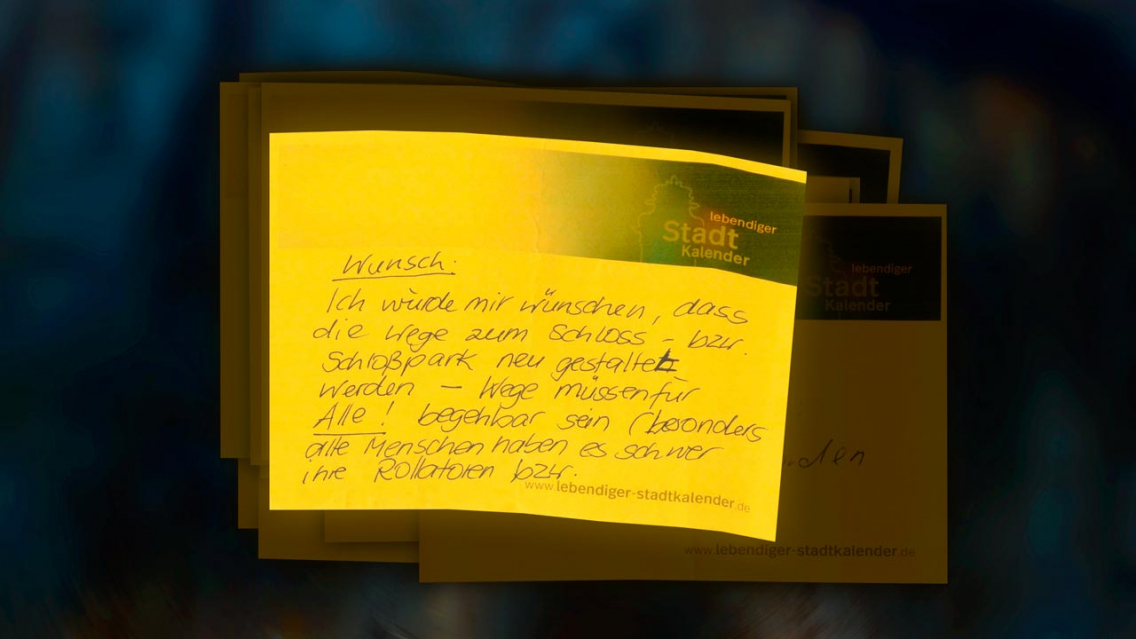 lebendiger
Stadt
Kalender
Wunsch:
Ich würde mir wünschen, dass
die Wege zum Schloss - bzw.
Schloßpark neu gestaltet
werden - Wege müssen für
Alle! begehbar sein (besonders
alte Menschen haben es schwer
ihre Rollatoren bzw.
www.lebendiger-stadtkalender.de
lebendiger
Stadt
Kalender
www.lebendiger-stadtkalender.de